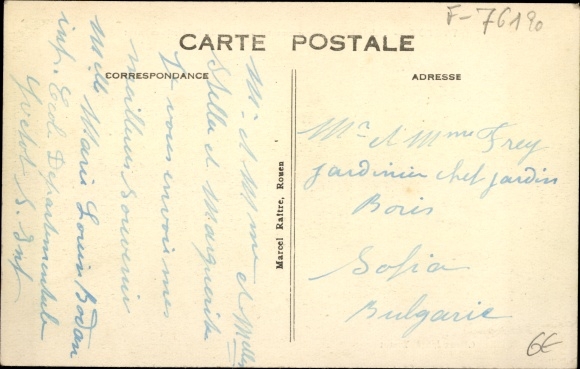 F-76190
CARTE POSTALE
CORRESPONDANCE
ADRESSE
Mr et Mme et Melle
Stella et Marguerite
Je vous envoie mes
meilleurs souvenir
Melle Marie Louise Bodan
inf. Ecole Départementale
Yvetot S. Inf
Marcel Raître, Rouen
Mr et Mme Frey
Jardinier chef jardin
Boris
Sofia
Bulgarie
6€